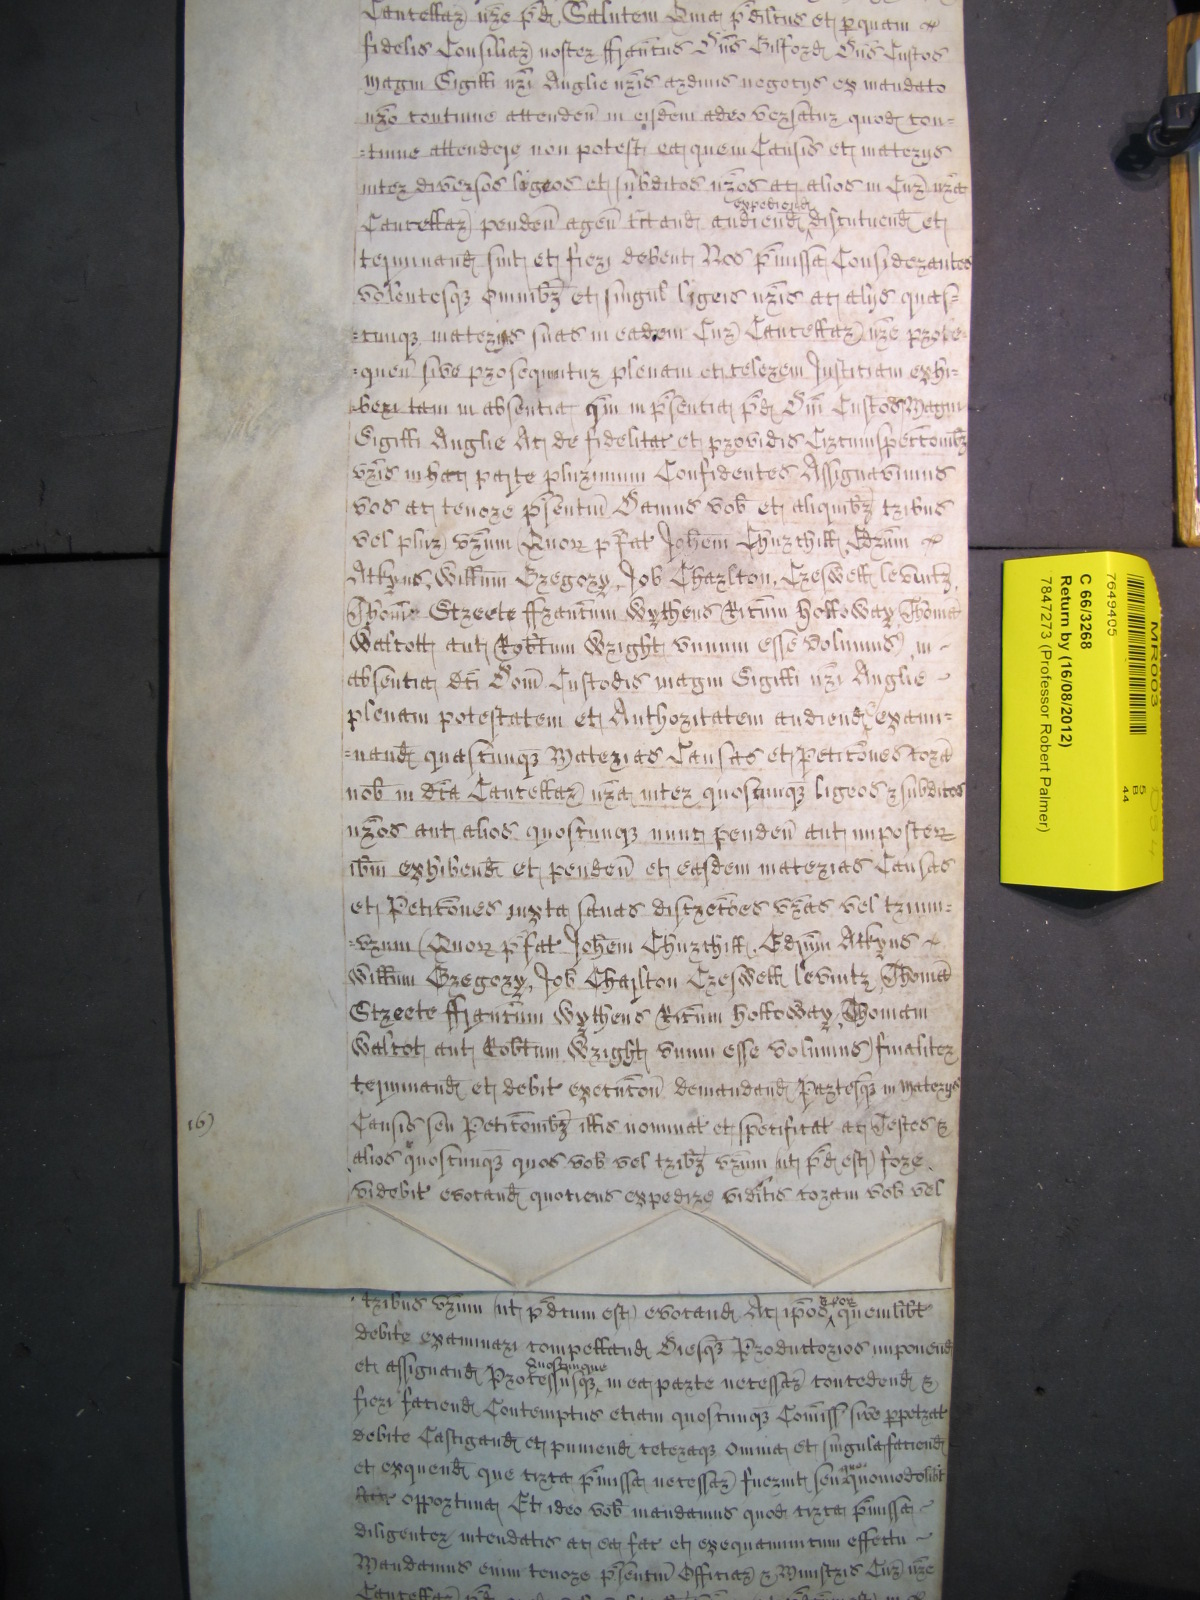 Cancellar nre pd Salutem Quia pdilcus et perquam
fidelis Consiliar noster ffrancus Dns Gilford Dns Custos
magni Sigilli nri Anglie nris arduis negociis ex mandato
nro continue attenden in eisdem adeo versatur quod con=
=tinue attendere non potest ea quem Causis et materiis
inter diversos ligeos et subditos nros ac alios in Cur nra
expediend
Cancellar penden agen tractand audiend discutiend et
terminand sint et fieri debent Nos pmissa Considerantes
volentesq omnibz et singul ligeis nris ac aliis quas=
=cunq materias suas in eadem Cur Cancellar nre prose=
=quen sive prosequutur plenam et celerem Justiciam exhi=
=beri tam in absentia qm in psentia pd Dni Custod Magni
Sigilli Anglie Ac de fidelitat et providis Circumspeccionibz
vris in hac parte plurimum Confidentes Assignavimus
vos ac tenore psentiu Damus vob et aliquibz tribus
vel plur vrum (Quor pfat Johem Churchill, Edrum
Atkyns, Willum Gregory, Job Charlton, Creswell levintz,
Thoma Streete ffrancum Wythens Ricum Holloway Thoma
Walcott aut Robtum Wright unum esse volumus) in
absentia dci Dom Custodis magni Sigilli nri Anglie
plenam potestatem et Authoritatem audiend exami=
=nand quascunq Materias Causas et Peticones coram
nob in dca Cancellar nra inter quoscunq ligeos & subditos
nros aut alios quoscunq nunc penden aut imposter
ibm exhibend et penden et easdem materias Causas
et Peticones juxta sanas discrecoes vras vel trium=
=vrum (Quor pfat Johem Churchill, Edrum Atkyns
Willum Gregory, Job Charlton Creswell levintz Thoma
Streete ffrancum Wythens Ricum Holloway, Thomam
Walcot aut Robtum Wright unum esse volumus) finaliter
terminand et debit execucon demandand Partesq in materiis
16)
Causis seu Peticonibz illis nominat et specificat ac Testes &
alios quoscunq quos vob vel tribz vrum (ut pd est) fore
videbit evocand quotiens expedire viditis coram vob vel
tribus vrum (ut pdcum est) evocand Ac ipos & eor quemlibt
debite examinari compelland Diesq Productorios imponend
Quoscunque
et assignand Processusq in ea parte necessar concedend &
fieri faciend Contemptus etiam quoscunq Comiss sive ppetrat
debite Castigand et puniend ceteraq omnia et singula faciend
et exquend que circa pmissa necessar fuerint seu quomodolibt
opportuna Et ideo vob mandamus quod circa pmissa
diligenter intendatis ac ea fac et exequamini cum effectu
Mandamus enim tenore psentiu Officiar & Ministris Cur nre
MR003
7649405
C 66/3268
Return by (16/08/2012)
7847273 (Professor Robert Palmer)
5
B
44